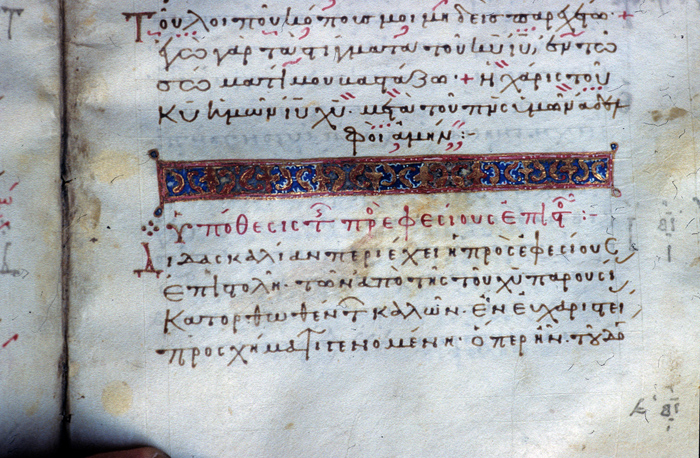 Τοῦ λοιποῦ κόπους μοι μηδεὶς παρεχέτω +
ἐγὼ γὰρ τὰ στίγματα τοῦ κυ ιυ, ἐν τῶ
σώματί μου βαστάζω + ἡ χάρις τοῦ
κυ ἡμῶν ιυ χυ. μετὰ τοῦ πνς ὑμῶν ἀδελ
φοί ἀμήν :-
Ὑπόθεσις τς πρ ἐφεσίους ἐπι
Διδασκαλίαν περιέχει ἡ πρὸς ἐφεσίους
ἐπιστολὴ. τῶν ἀπὸ τῆς τοῦ χυ παρουσί
κατορθωθέντ καλῶν. ἐν εὐχαρι
προσχήματι γενομένη. ὅπερ ἦν